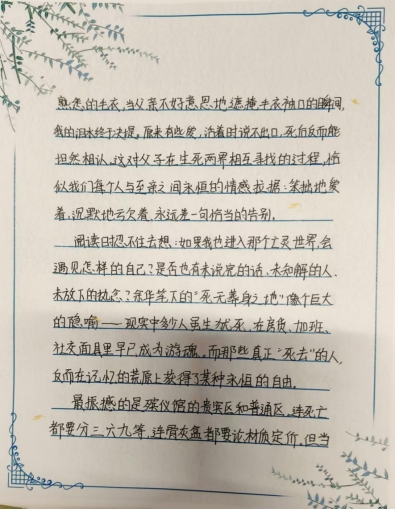 熟悉的毛衣,当父亲不好意思地遮掩毛衣袖口的瞬间,
我的泪水终于决堤。原来有些爱,活着时说不出口,死后反而能
坦然相认。这对父子在生死两界相互寻找的过程,恰
似我们每个人与至亲之间永恒的情感拉据:笨拙地爱
着,沉默地亏欠着,永远差一句恰当的告别。
阅读时忍不住去想:如果我也进入那个亡灵世界,会
遇见怎样的自己?是否也有未说完的话、未和解的人、
未放下的执念?余华笔下的"死无葬身之地"像个巨大
的隐喻——现实中多少人虽生犹死,在房贷、加班、
社交面具里早已成为游魂,而那些真正"死去"的人,
反而在记忆的荒原上获得了某种永恒的自由。
最振撼的是殡仪馆的贵宾区和普通区,连死亡
都要分三六九等,连骨灰盒都要论材质定价,但当